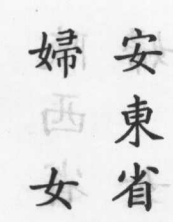 安東省
婦女